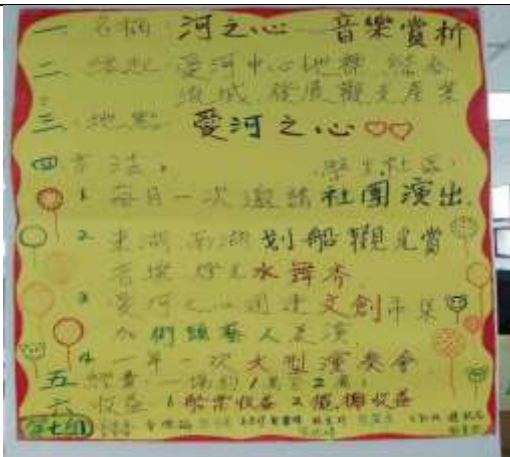 一 名稱 河之心 音樂賞析
二 緣起 愛河中心地帶 結合
流域 發展觀光產業
三 地點 愛河之心
四 方法:學生社區
1 每日一次邀請社團演出
2 東湖 南湖 划船觀光賞
音樂 燈光水舞秀
3 愛河之心周邊文創市集
加街頭藝人表演
4 一年一次大型演奏會
五 經費:一場約1萬至2萬
六 收益 1 船票收益 2 擺攤收益
第七組